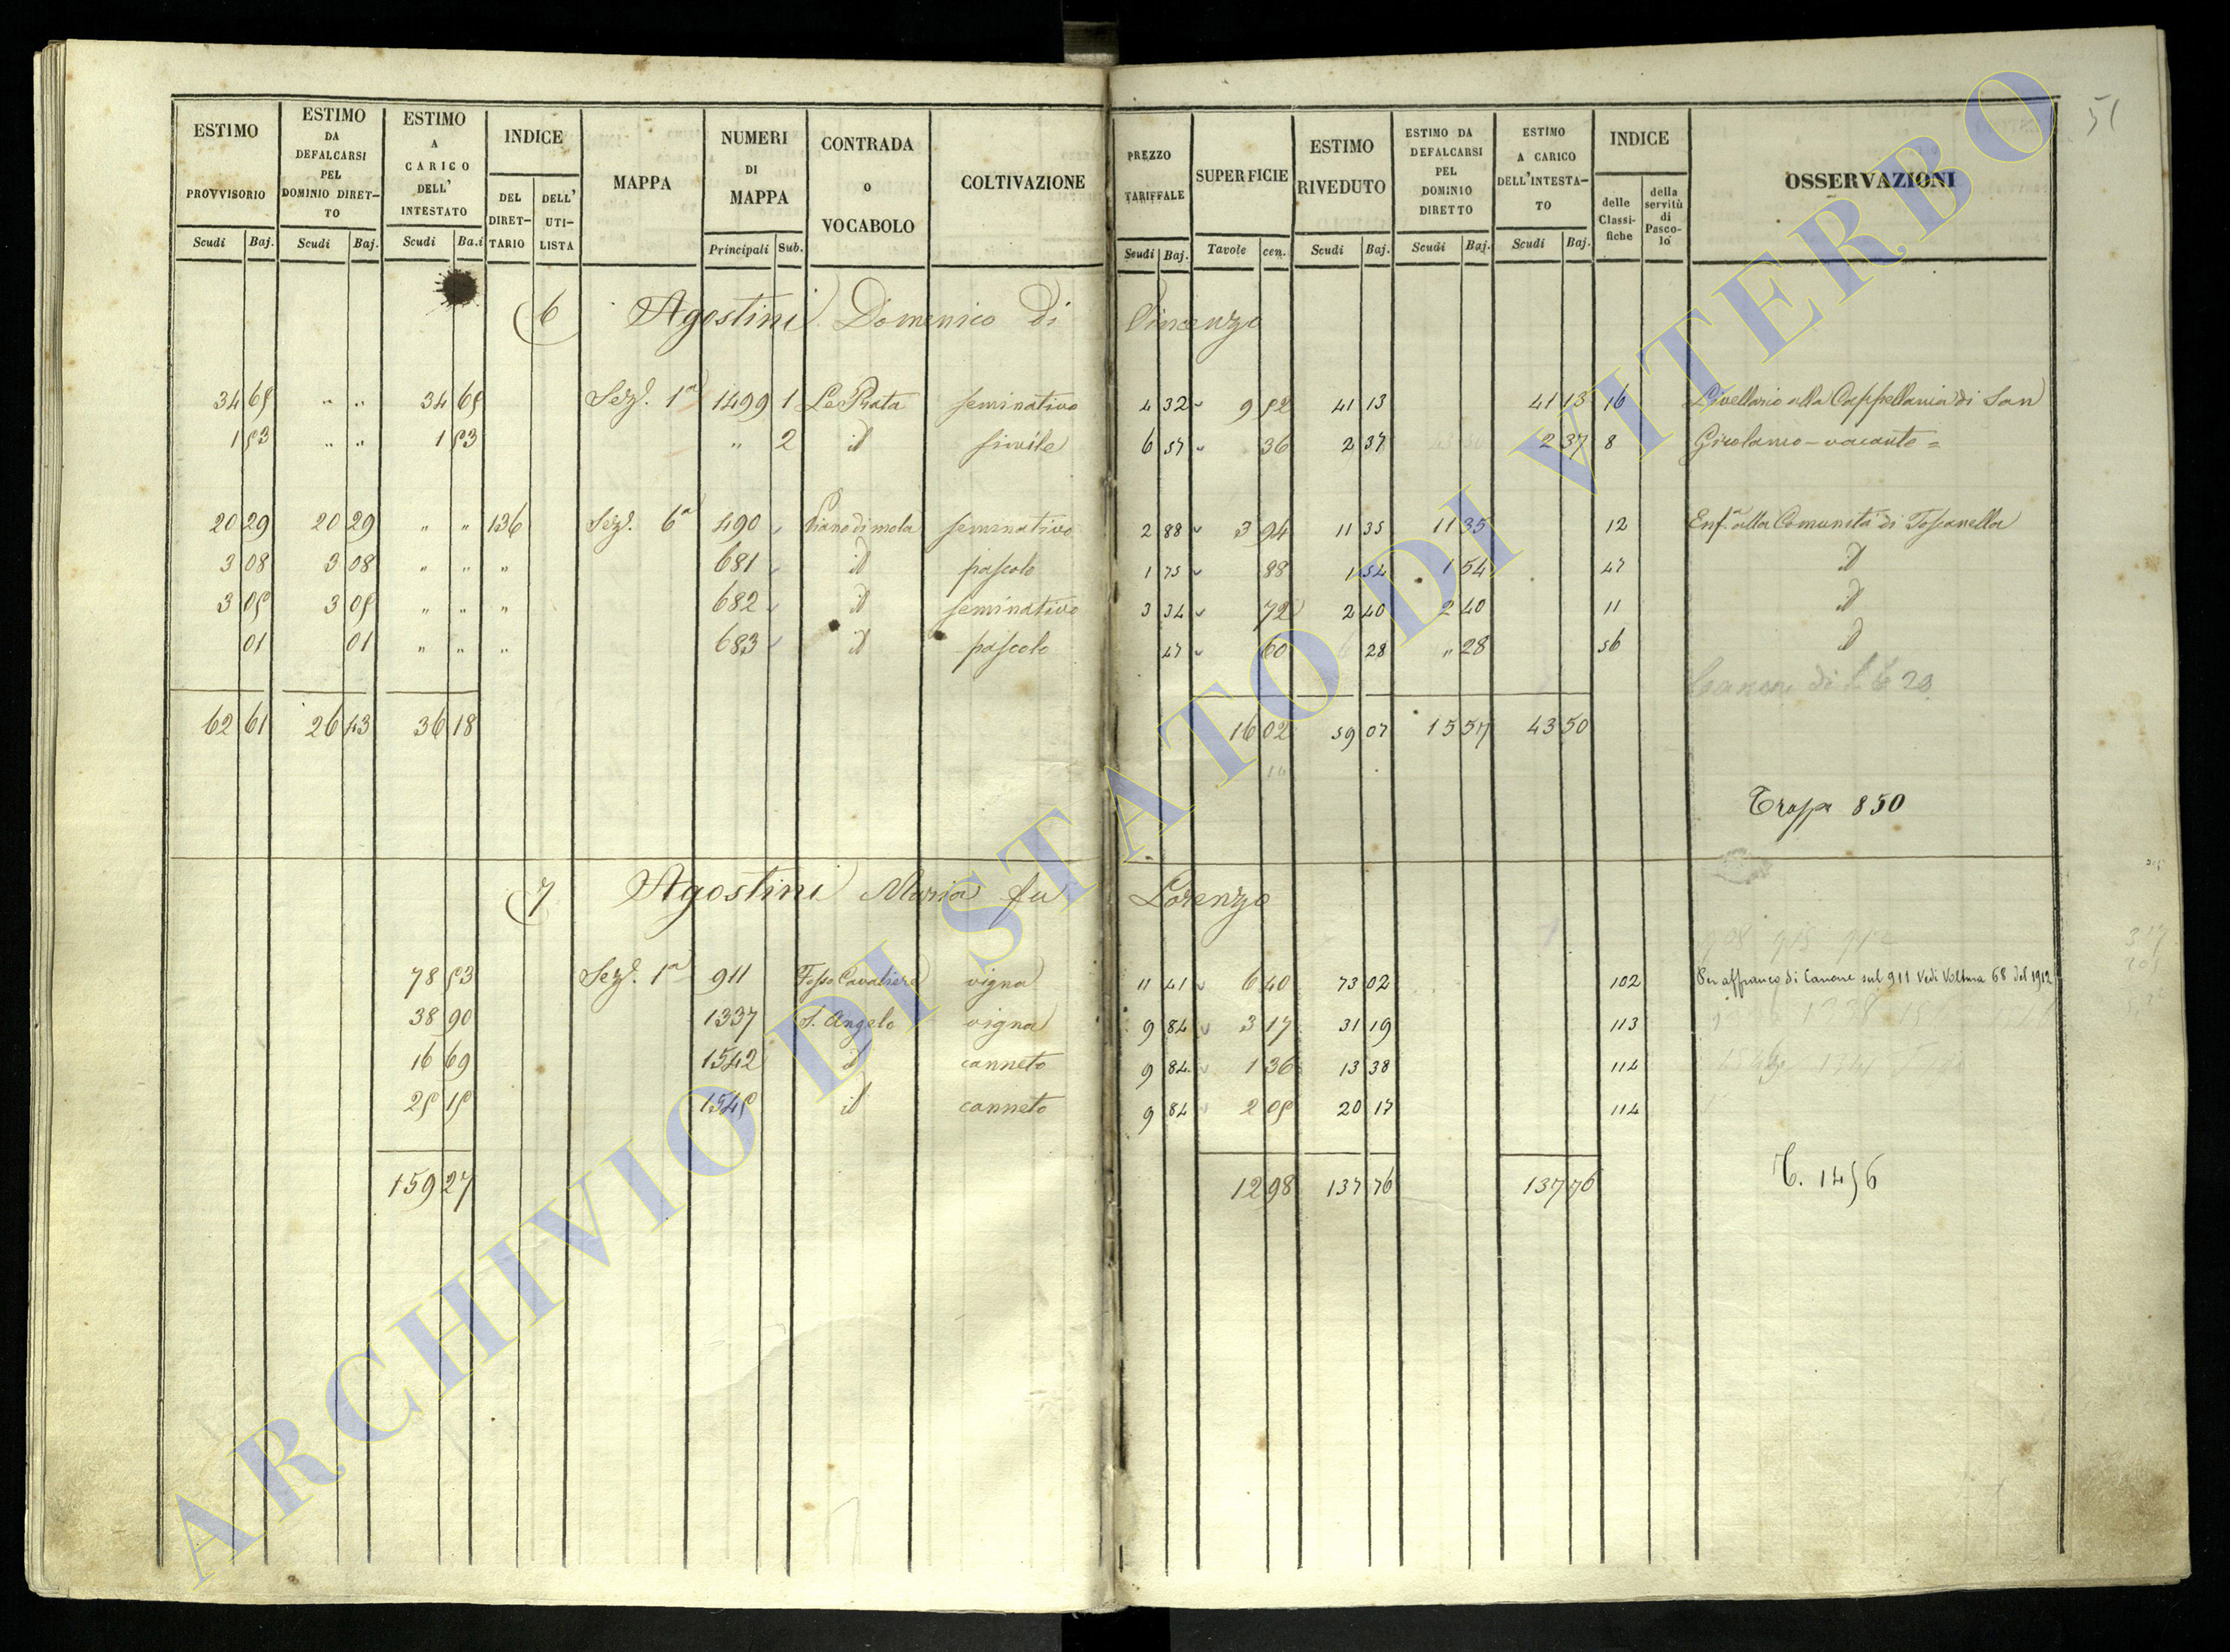 ESTIMO PROVVISORIO | ESTIMO DA DEFALCARSI PEL DOMINIO DIRETTO | ESTIMO A CARICO DELL' INTESTATO | INDICE | MAPPA | NUMERI DI MAPPA | CONTRADA o VOCABOLO | COLTIVAZIONE | PREZZO TARIFFALE | SUPERFICIE | ESTIMO RIVEDUTO | ESTIMO DA DEFALCARSI PEL DOMINIO DIRETTO | ESTIMO A CARICO DELL'INTESTATO | INDICE | OSSERVAZIONI
DEL DIRETTARIO | DELL' UTILISTA | delle Classifiche | della servitù di Pascolo
Scudi | Baj. | Scudi | Baj. | Scudi | Ba.i | Principali | Sub. | Scudi | Baj. | Tavole | cen. | Scudi | Baj. | Scudi | Baj. | Scudi | Baj.
51
6 Agostini Domenico di Vincenzo
34 65 | " " | 34 65 | Sez. 1a | 1499 | 1 | Le Prata | seminativo | 4 32 | 9 52 | 41 13 | 41 13 | 16 | Livellario alla Cappellania di San
1 53 | " " | 1 53 | " | 2 | id | simile | 6 57 | 36 | 2 37 | 2 37 | 8 | Girolamo - vacante =
20 29 | 20 29 | " " | 136 | Sez. 6a | 490 | Piano di mola | seminativo | 2 88 | 3 94 | 11 35 | 11 35 | 12 | Enf.a alla Comunità di Toscanella
3 08 | 3 08 | " " | " | 681 | id | pascolo | 1 75 | 88 | 1 54 | 1 54 | 47 | id
3 05 | 3 05 | " " | " | 682 | id | seminativo | 3 34 | 72 | 2 40 | 2 40 | 11 | id
01 | 01 | " " | " | 683 | id | pascolo | 47 | 60 | 28 | " 28 | 56 | id
Canone di
62 61 | 26 43 | 36 18 | 16 02 | 59 07 | 15 57 | 43 50
Trasp 850
7 Agostini Maria fu Lorenzo
78 53 | Sez. 1a | 911 | Fosso Cavaliere | vigna | 11 41 | 6 40 | 73 02 | 102 | Per affranco di Canone sul 911 Vedi Voltura 68 del 1912
38 90 | 1337 | S. Angelo | vigna | 9 84 | 3 17 | 31 19 | 113
16 69 | 1542 | id | canneto | 9 84 | 1 36 | 13 38 | 114
25 15 | 1545 | id | canneto | 9 84 | 2 05 | 20 17 | 114
159 27 | 12 98 | 137 76 | 137 76
T. 1456
ARCHIVIO DI STATO DI VITERBO